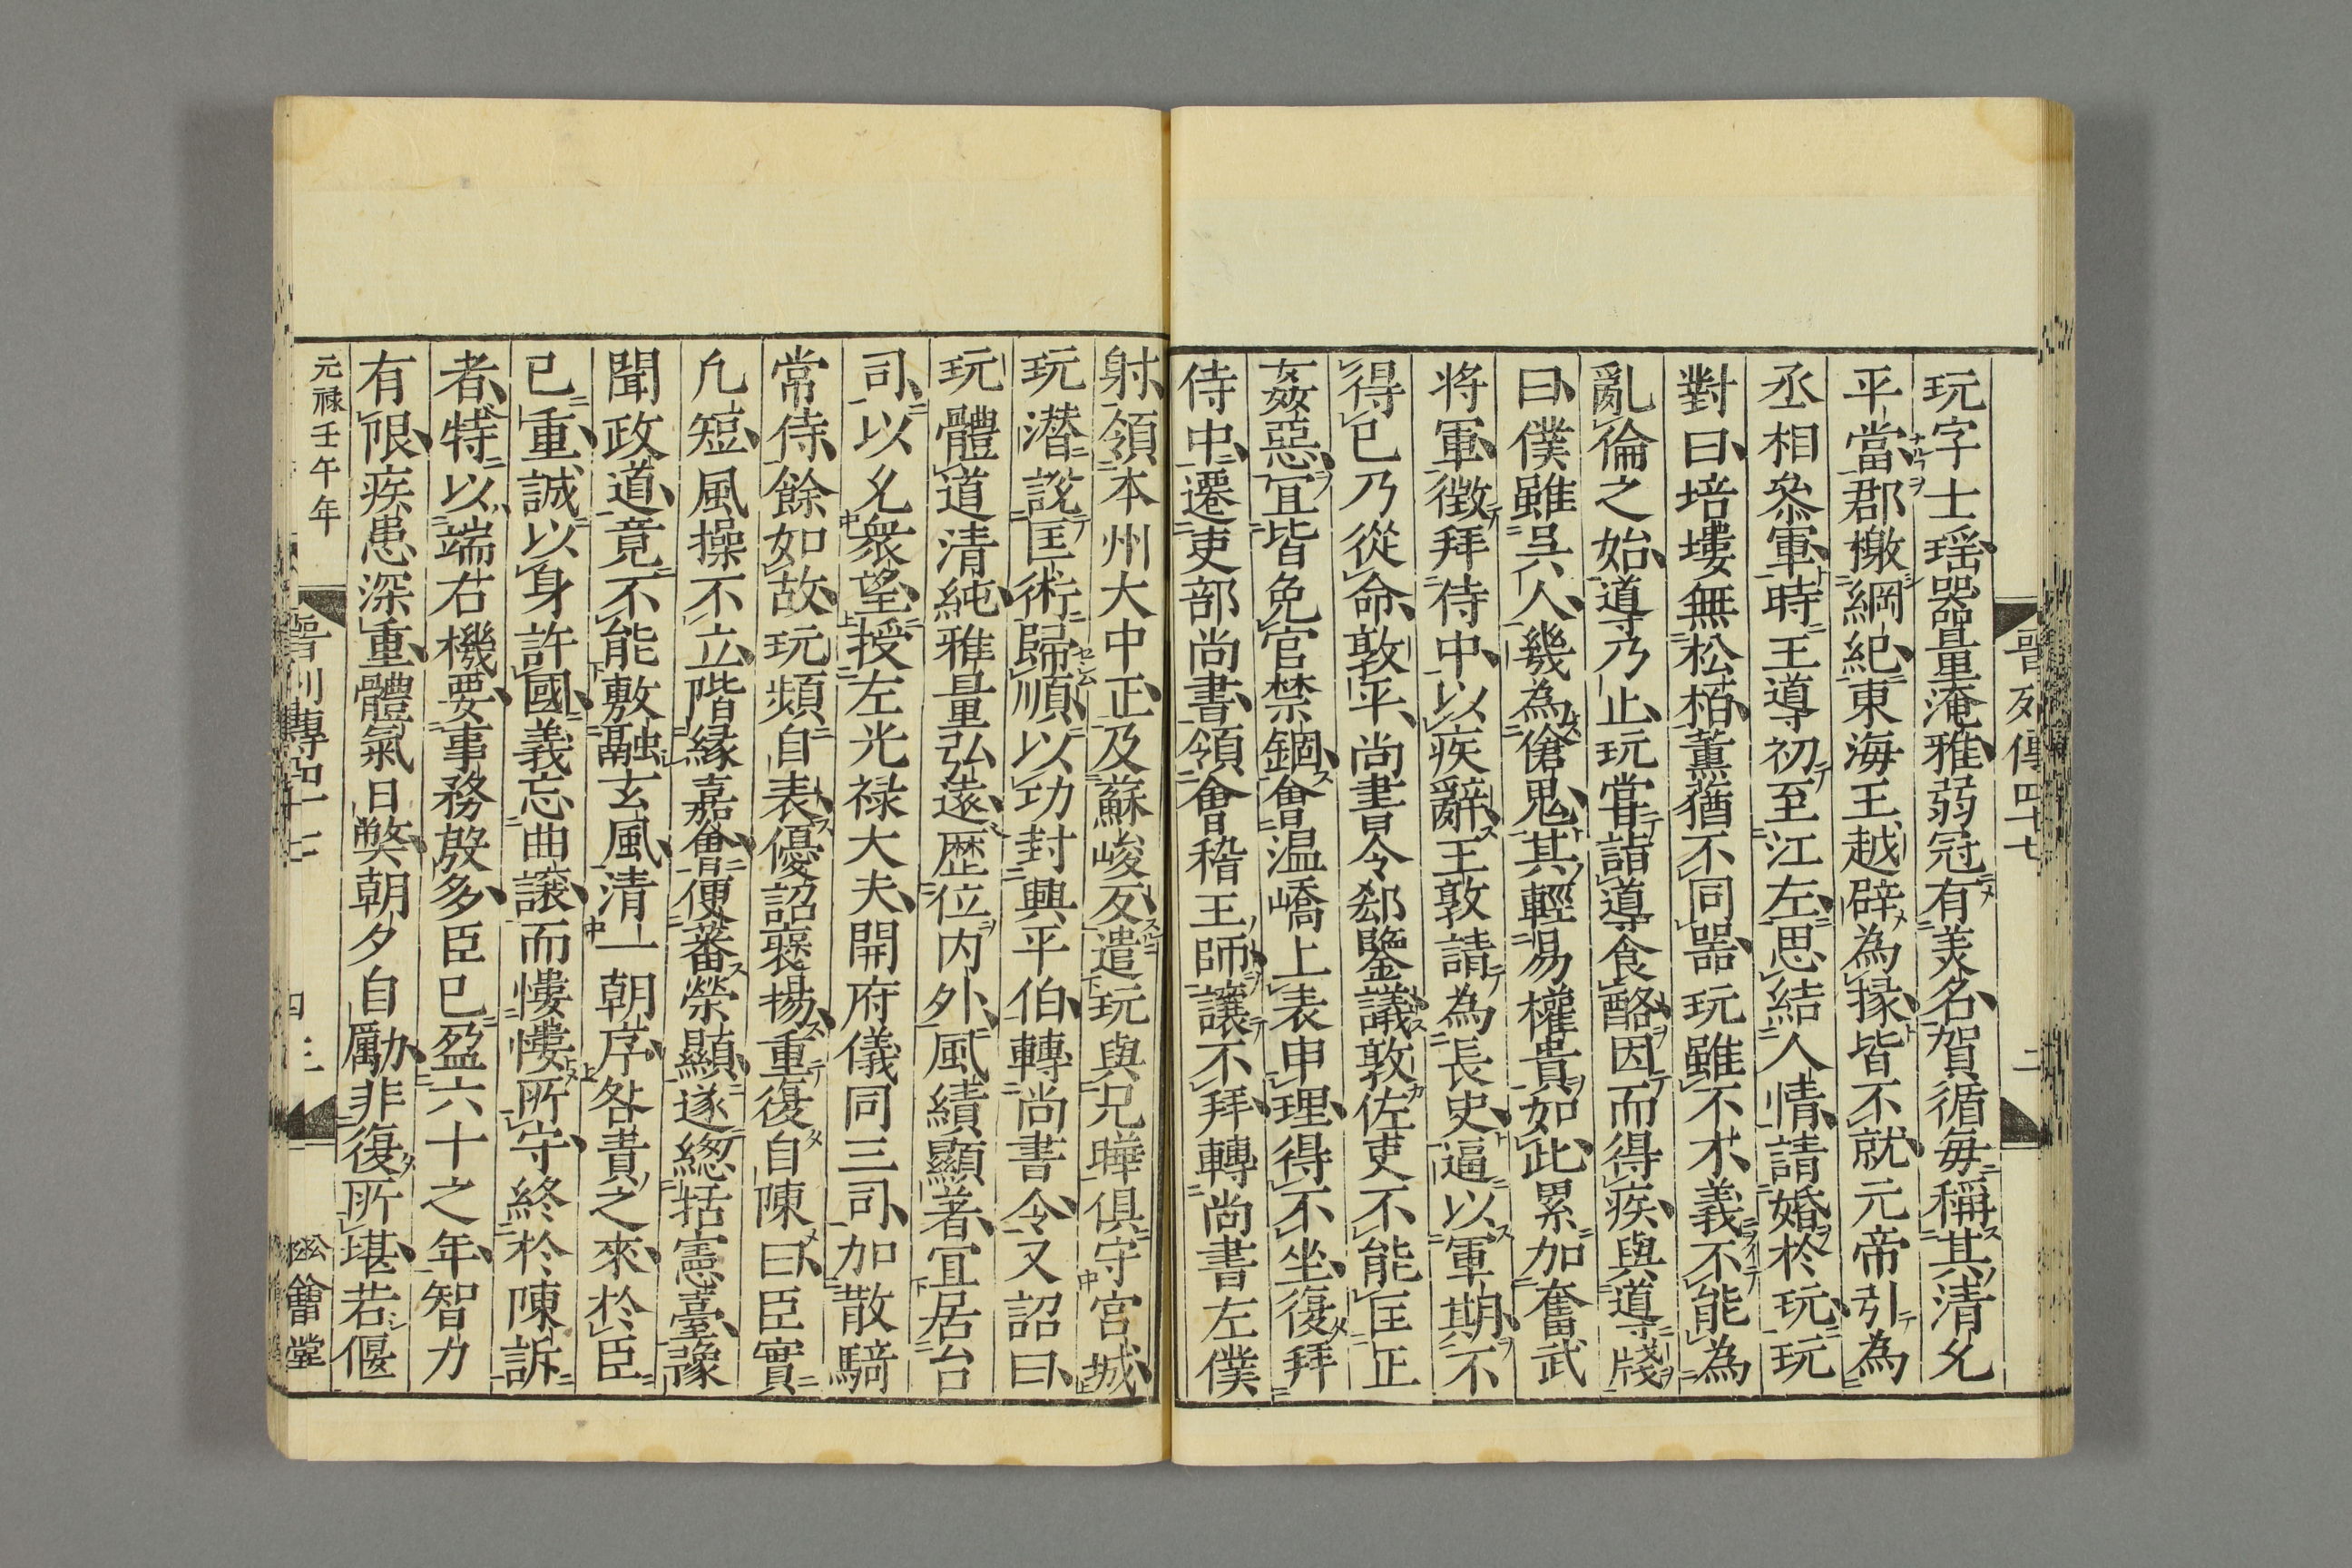 晉列傳四十七
二
玩字士瑶器量淹雅弱冠有美名賀循毎稱其清允
平當郡檄綱紀東海王越辟為掾皆不就元帝引為
丞相叅軍時王導初至江左思結人情請婚於玩玩
對曰培塿無松栢薫蕕不同器玩雖不才義不能為
亂倫之始導乃止玩嘗詣導食酪因而得疾與導牋
曰僕雖吳人幾為傖鬼其輕易權貴如此累加奮武
将軍徴拜侍中以疾辭王敦請為長史逼以軍期不
得已乃從命敦平尚書令郄鑒議敦佐吏不能匡正
姦惡宜皆免官禁錮會温嶠上表申理得不坐復拜
侍中遷吏部尚書領會稽王師讓不拜轉尚書左僕
射領本州大中正及蘇峻反遣玩與兄曄俱守宮城
玩潜說匡術歸順以功封興平伯轉尚書令又詔曰
玩體道清純雅量弘遠歴位内外風績顯著宜居台
司以允衆望授左光禄大夫開府儀同三司加散騎
常侍餘如故玩頻自表優詔襃揚重復自陳曰臣實
凡短風操不立階縁嘉會便蕃榮顯遂緫括憲臺豫
聞政道竟不能敷融玄風清一朝序咎責之來於臣
已重誠以身許國義忘曲讓而慺慺所守終於陳訴
者特以端右機要事務殷多臣已盈六十之年智力
有限疾患深重體氣日獘朝夕自勵非復所堪若偃
元禄壬午年
晉列傳四十七
松會堂